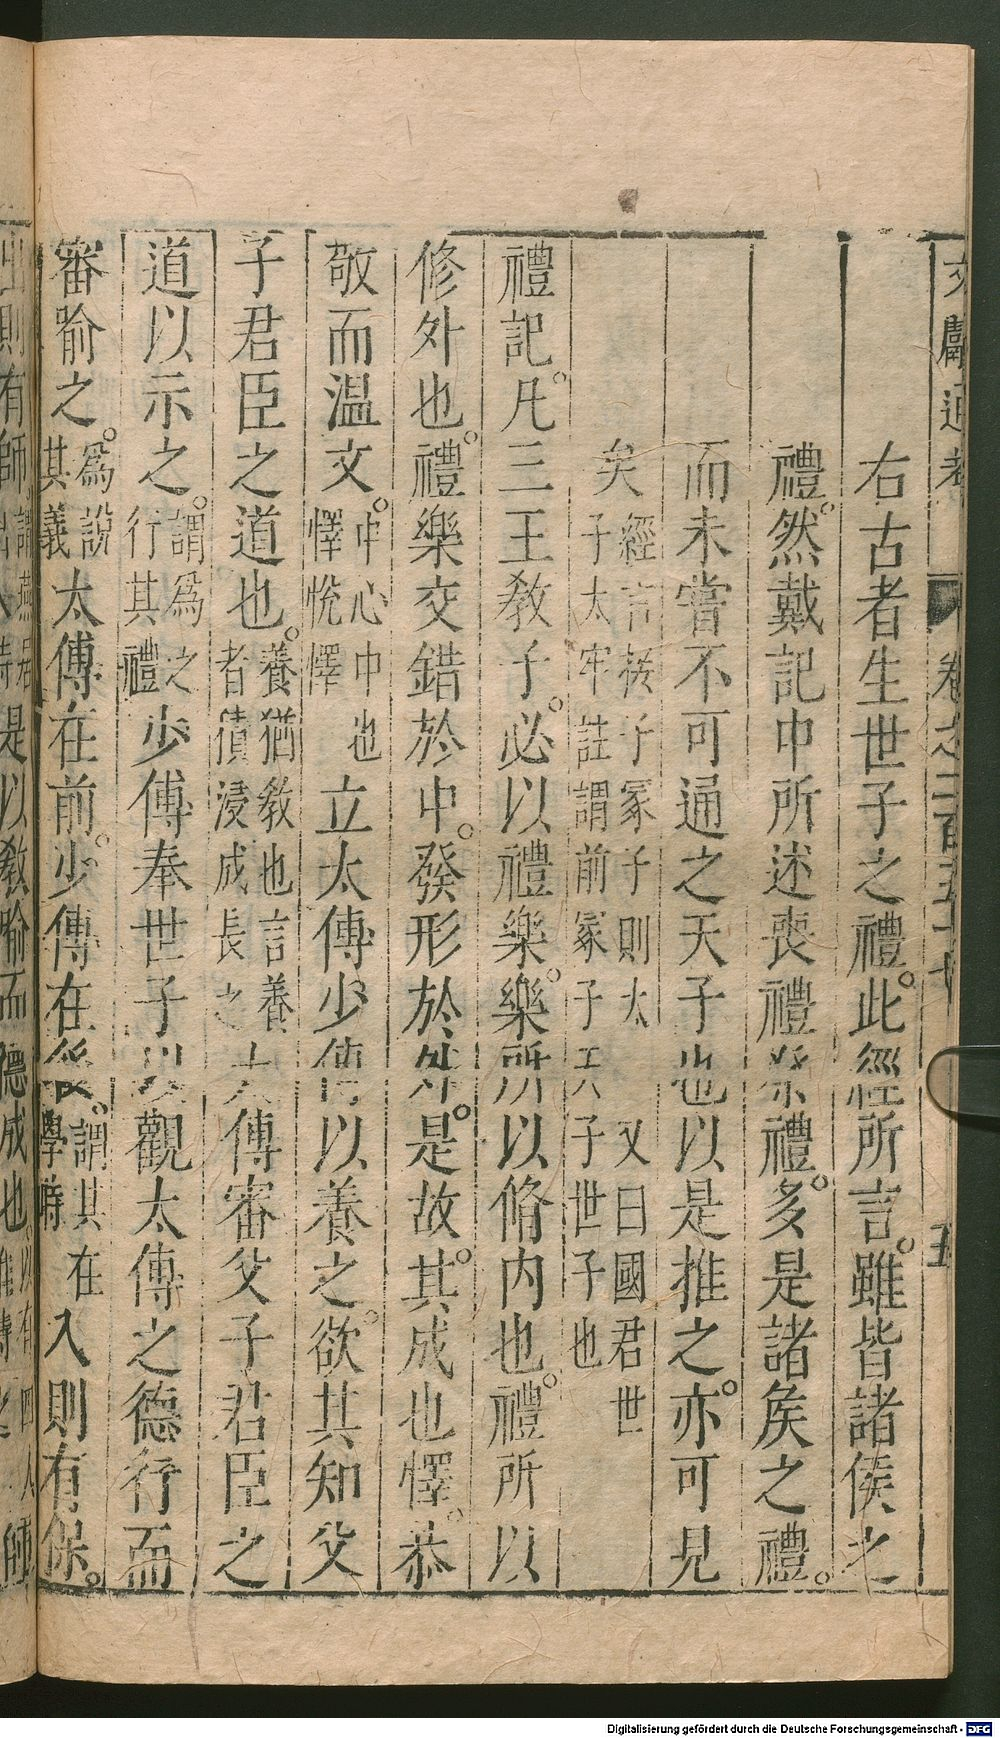 文獻通考 卷之二百五十 五
右古者生世子之禮此經所言雖皆諸侯之
禮然戴記中所述喪禮祭禮多是諸矦之禮
而未嘗不可通之天子也以是推之亦可見
矣經言接子冢子則太 又曰國君世
子太牢註謂前冢子天子世子也
禮記凡三王敎子必以禮樂樂所以脩内也禮所以
修外也禮樂交錯於中發形於外是故其成也懌恭
敬而温文中心中也
懌悅懌立太傅少傅以養之欲其知父
子君臣之道也養猶敎也言養
者積浸成長之太傅審父子君臣之
道以示之謂爲之
行其禮少傅奉世子以觀太傅之德行而
審喻之爲說
其義太傅在前少傅在後謂其在
學時入則有保
出則有師謂燕居
出入時是以敎喻而德成也以有四人
師
Digitalisierung gefördert durch die Deutsche Forschungsgemeinschaft - DFG